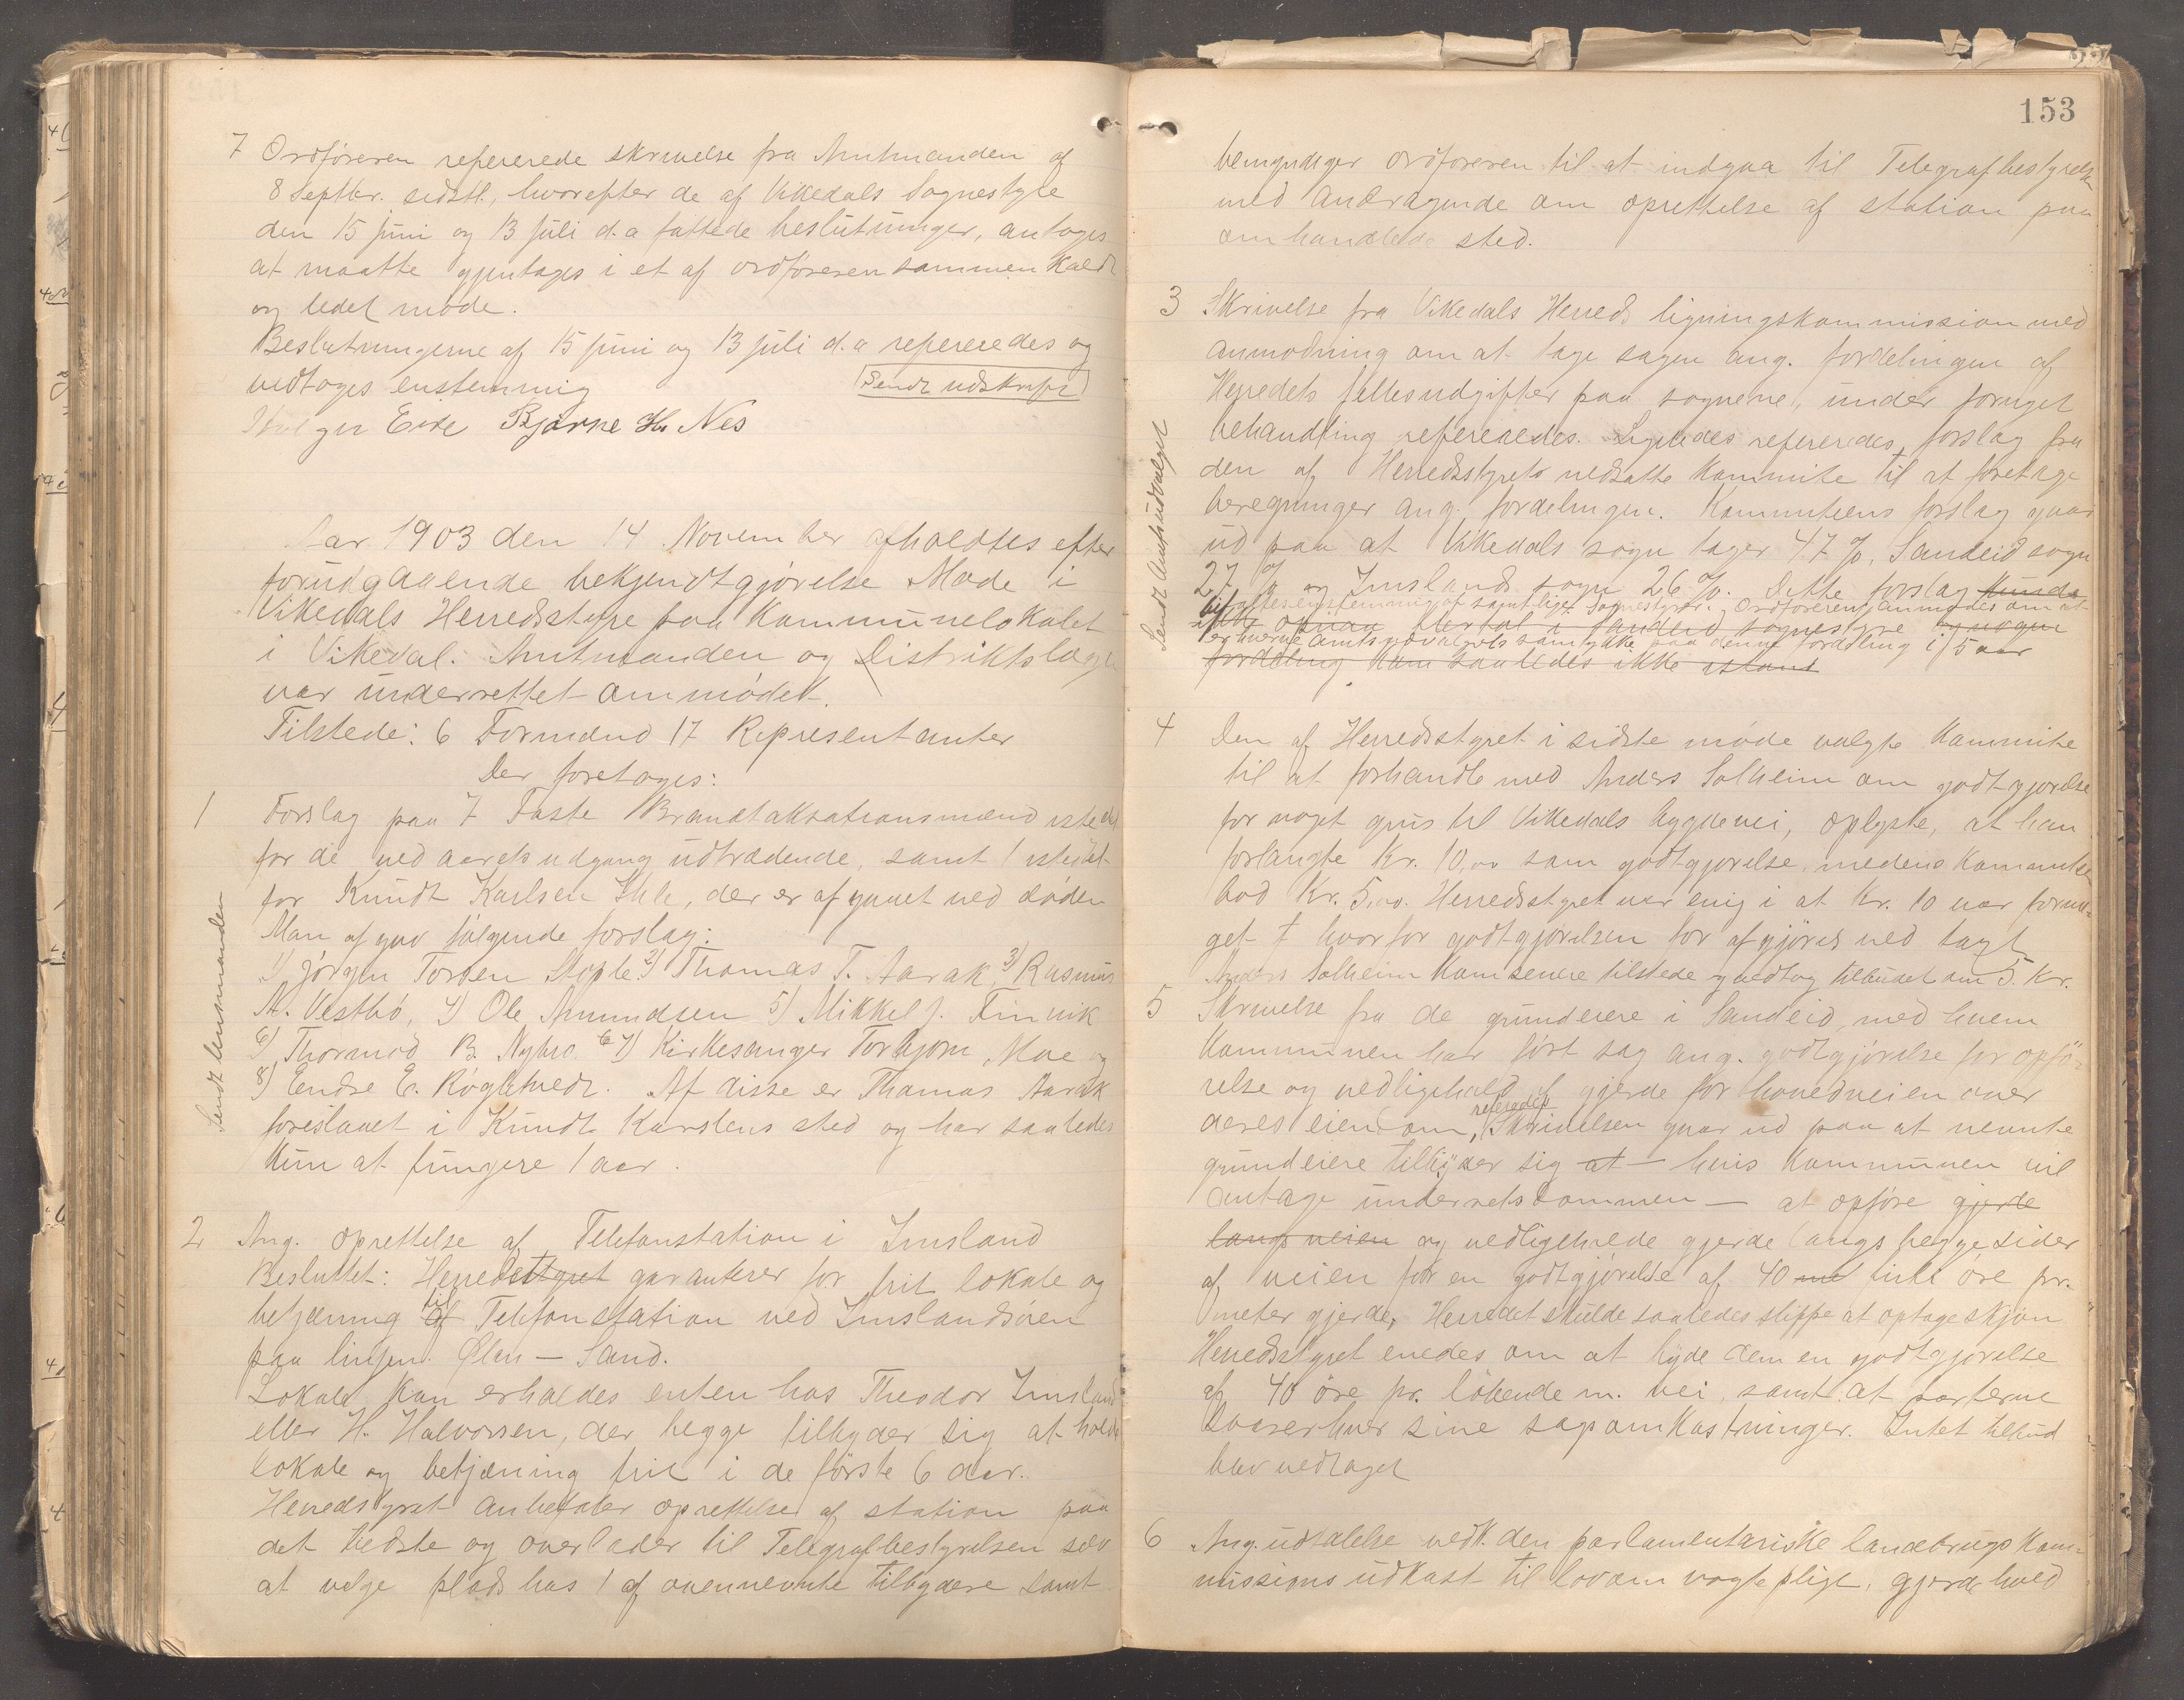 7 Ordføreren refererede skrivelse fra Amtmanden af
8 Septbr. sidstl., hvorefter de af Vikedals Sognestyre
den 15 juni og 13 juli d.a fattede beslutninger, antoges
at maatte gjentages i et af ordføreren sammenkaldt
og ledet møde.
Beslutningerne af 15 juni og 13 juli d.a refereredes og
vedtoges enstemmig
Sendt udskrift
Eide Bjarne H. Nes
Aar 1903 den 14 November afholdtes efter
forudgaaende bekjendtgjørelse Møde i
Vikedals Herredsstyre paa Kommunelokalet
i Vikedal. Amtmanden og Distriktslægen
var underrettet om mødet.
Tilstede: 6 Formænd 17 Representanter
Der foretoges:
1 Forslag paa 7 Faste Brandtaksationsmænd istedet
for de ved aarets udgang udtrædende, samt 1 istedet
for Knudt Karlsen, der er afgaaet ved døden
Man afgav følgende forslag:
1) Jørgen Torsen Stople 2) Thomas T. Aarak, 3) Rasmus
A. Vestbø, 4) Ole Amundsen 5) Mikkel J. Finvik
6) Thormod B. Nybro. 7) Kirkesanger Torbjørn Moe og
8) Endre E. Røgletvedt. Af disse er Thomas Aarak
foreslaaet i Knudt Karlsens sted og har saaledes
kun at fungere 1 aar.
Sendt lensmanden
2 Ang. oprettelse af Telefonstation i Imsland
Besluttet: Herredsstyret garanterer for frit lokale og
betjening til Telefonstation ved Imslandsøren
paa linjen Ølen — Sand.
Lokale kan erholdes enten hos Theodor Imsland
eller H. Halvorsen, der begge tilbyder sig at holde
lokale og betjening frit i de første 6 aar.
Herredsstyret anbefaler oprettelse af station paa
det bedste og overlader til Telegrafbestyrelsen selv
at velge plads hos 1 af ovennevnte tilbydere samt
153
bemyndiger ordføreren til at indgaa til Telegrafbestyrelsen
med Andragende om oprettelse af station paa
omhandlede sted.
3 Skrivelse fra Vikedals Herreds ligningskommission med
anmodning om at tage sagen ang. fordelingen af
Herredets fællesudgifter paa sognene, under fornyet
behandling refereredes. Ligeledes refereredes forslag fra
den af Herredsstyret nedsatte Kommite til at foretage
beregninger ang. fordelingen. Kommiteens forslag gaar
ud paa at Vikedals sogn tager 47 %, Sandeid sogn
27 % og Imslands sogn 26 %. Dette forslag kunde
bifaltes enstemmig af samtlige Sognestyrer. Ordføreren anmodes om at
ikke opnaa flertal i Sandeid sognestyre og nogen
erhverve Amtsudvalgets samtykke paa denne fordeling i 5 aar
fordeling kom saaledes ikke istand
Sendt Amtsudvalget
4 Den af Herredsstyret i sidste møde valgte Kommite
til at forhandle med Anders Solheim om godtgjørelse
for noget grus til Vikedals bygdevei, oplyste, at han
forlangte Kr. 10,00 som godtgjørelse, medens Kommiteen
bod Kr. 5,00. Herredsstyret var enig i at Kr. 10 var forme-
get hvorfor godtgjørelsen for afgjøres ved taxt
Anders Solheim kom senere tilstede og vedtog tilbudet om 5. Kr.
5 Skrivelse fra de grundeiere i Sandeid, med hvem
Kommunen har ført sag ang. godtgjørelse for opfø-
relse og vedligehold af gjerde for hovedveien over
deres eiendom, refereredes. Skrivelsen gaar ud paa at nevnte
grundeiere tilbyder sig at — hvis Kommunen vil
antage underretsdommen — at opføre gjerde
langs veien og vedligeholde gjerde langs begge sider
af veien for en godtgjørelse af 40 firti øre pr.
meter gjerde, Herredet skulde saaledes slippe at optage skjøn
Herredsstyret enedes om at byde dem en godtgjørelse
af 40 øre pr. løbende m. vei, samt at parterne
bærer hver sine sagsomkostninger. Intet tilbud
blev vedtaget
6 Ang. udtalelse vedk. den parlamentariske landbrugskom-
missions udkast til lov om vogtepligt, gjerdehold